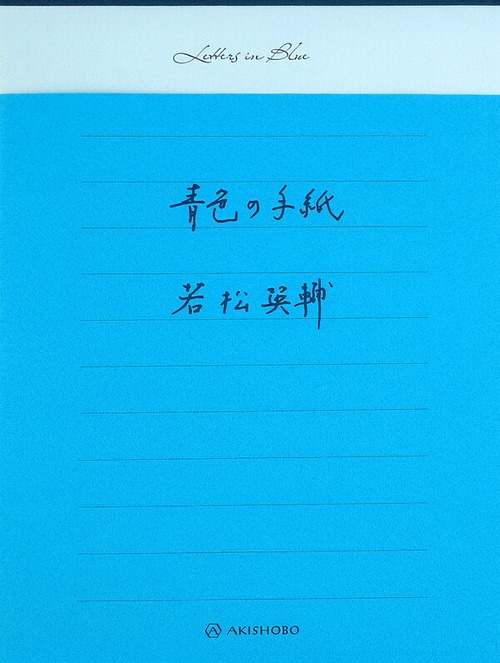 Letters in Blue
青色の手紙
若松英輔
AKISHOBO